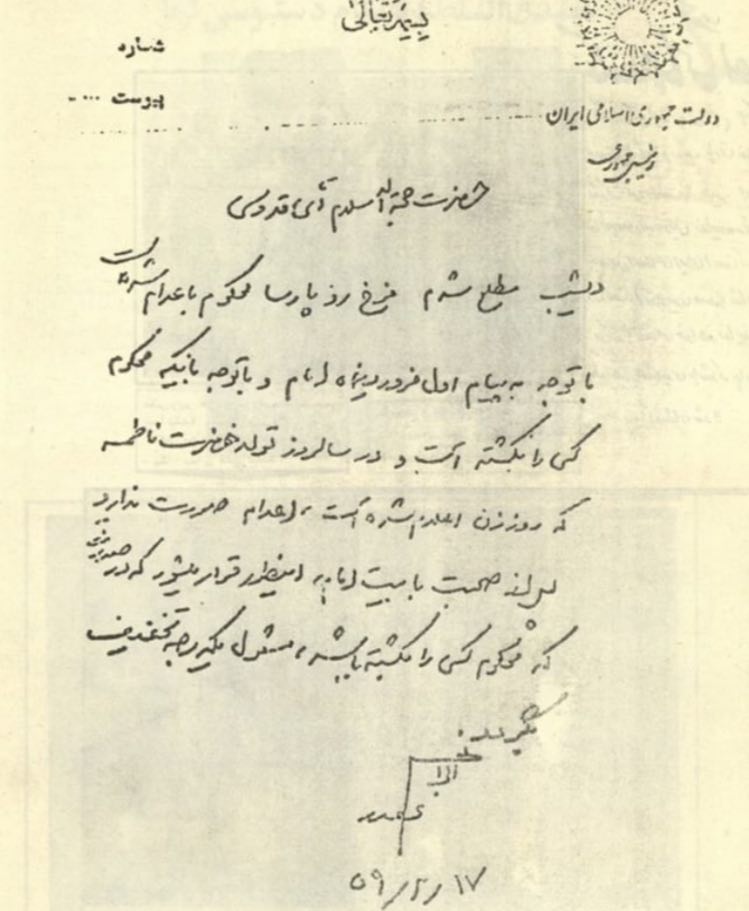 بسمه تعالی
شماره
پیوست ....
دولت جمهوری اسلامی ایران
رئیس جمهوری
حضرت حجة الاسلام آقای قدوسی
دیشب مطلع شدم فرخ رو پارسا محکوم باعدام شده است
با توجه به پیام اول فروردین ماه امام و با توجه باینکه محکوم
کسی را نکشته است و در سالروز تولد حضرت فاطمه
که روز زن اعلام شده است، اعدام صورت ندارد
پس از صحبت با بیت امام، اینطور قرار میشود که در صورتی
که محکوم کسی را نکشته باشد، مشمول یکدرجه تخفیف
۵۹/۲/۱۷